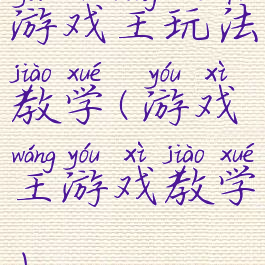 游戏王玩法
jiào xué yóu xì
教学(游戏
wáng yóu xì jiào xué
王游戏教学
)